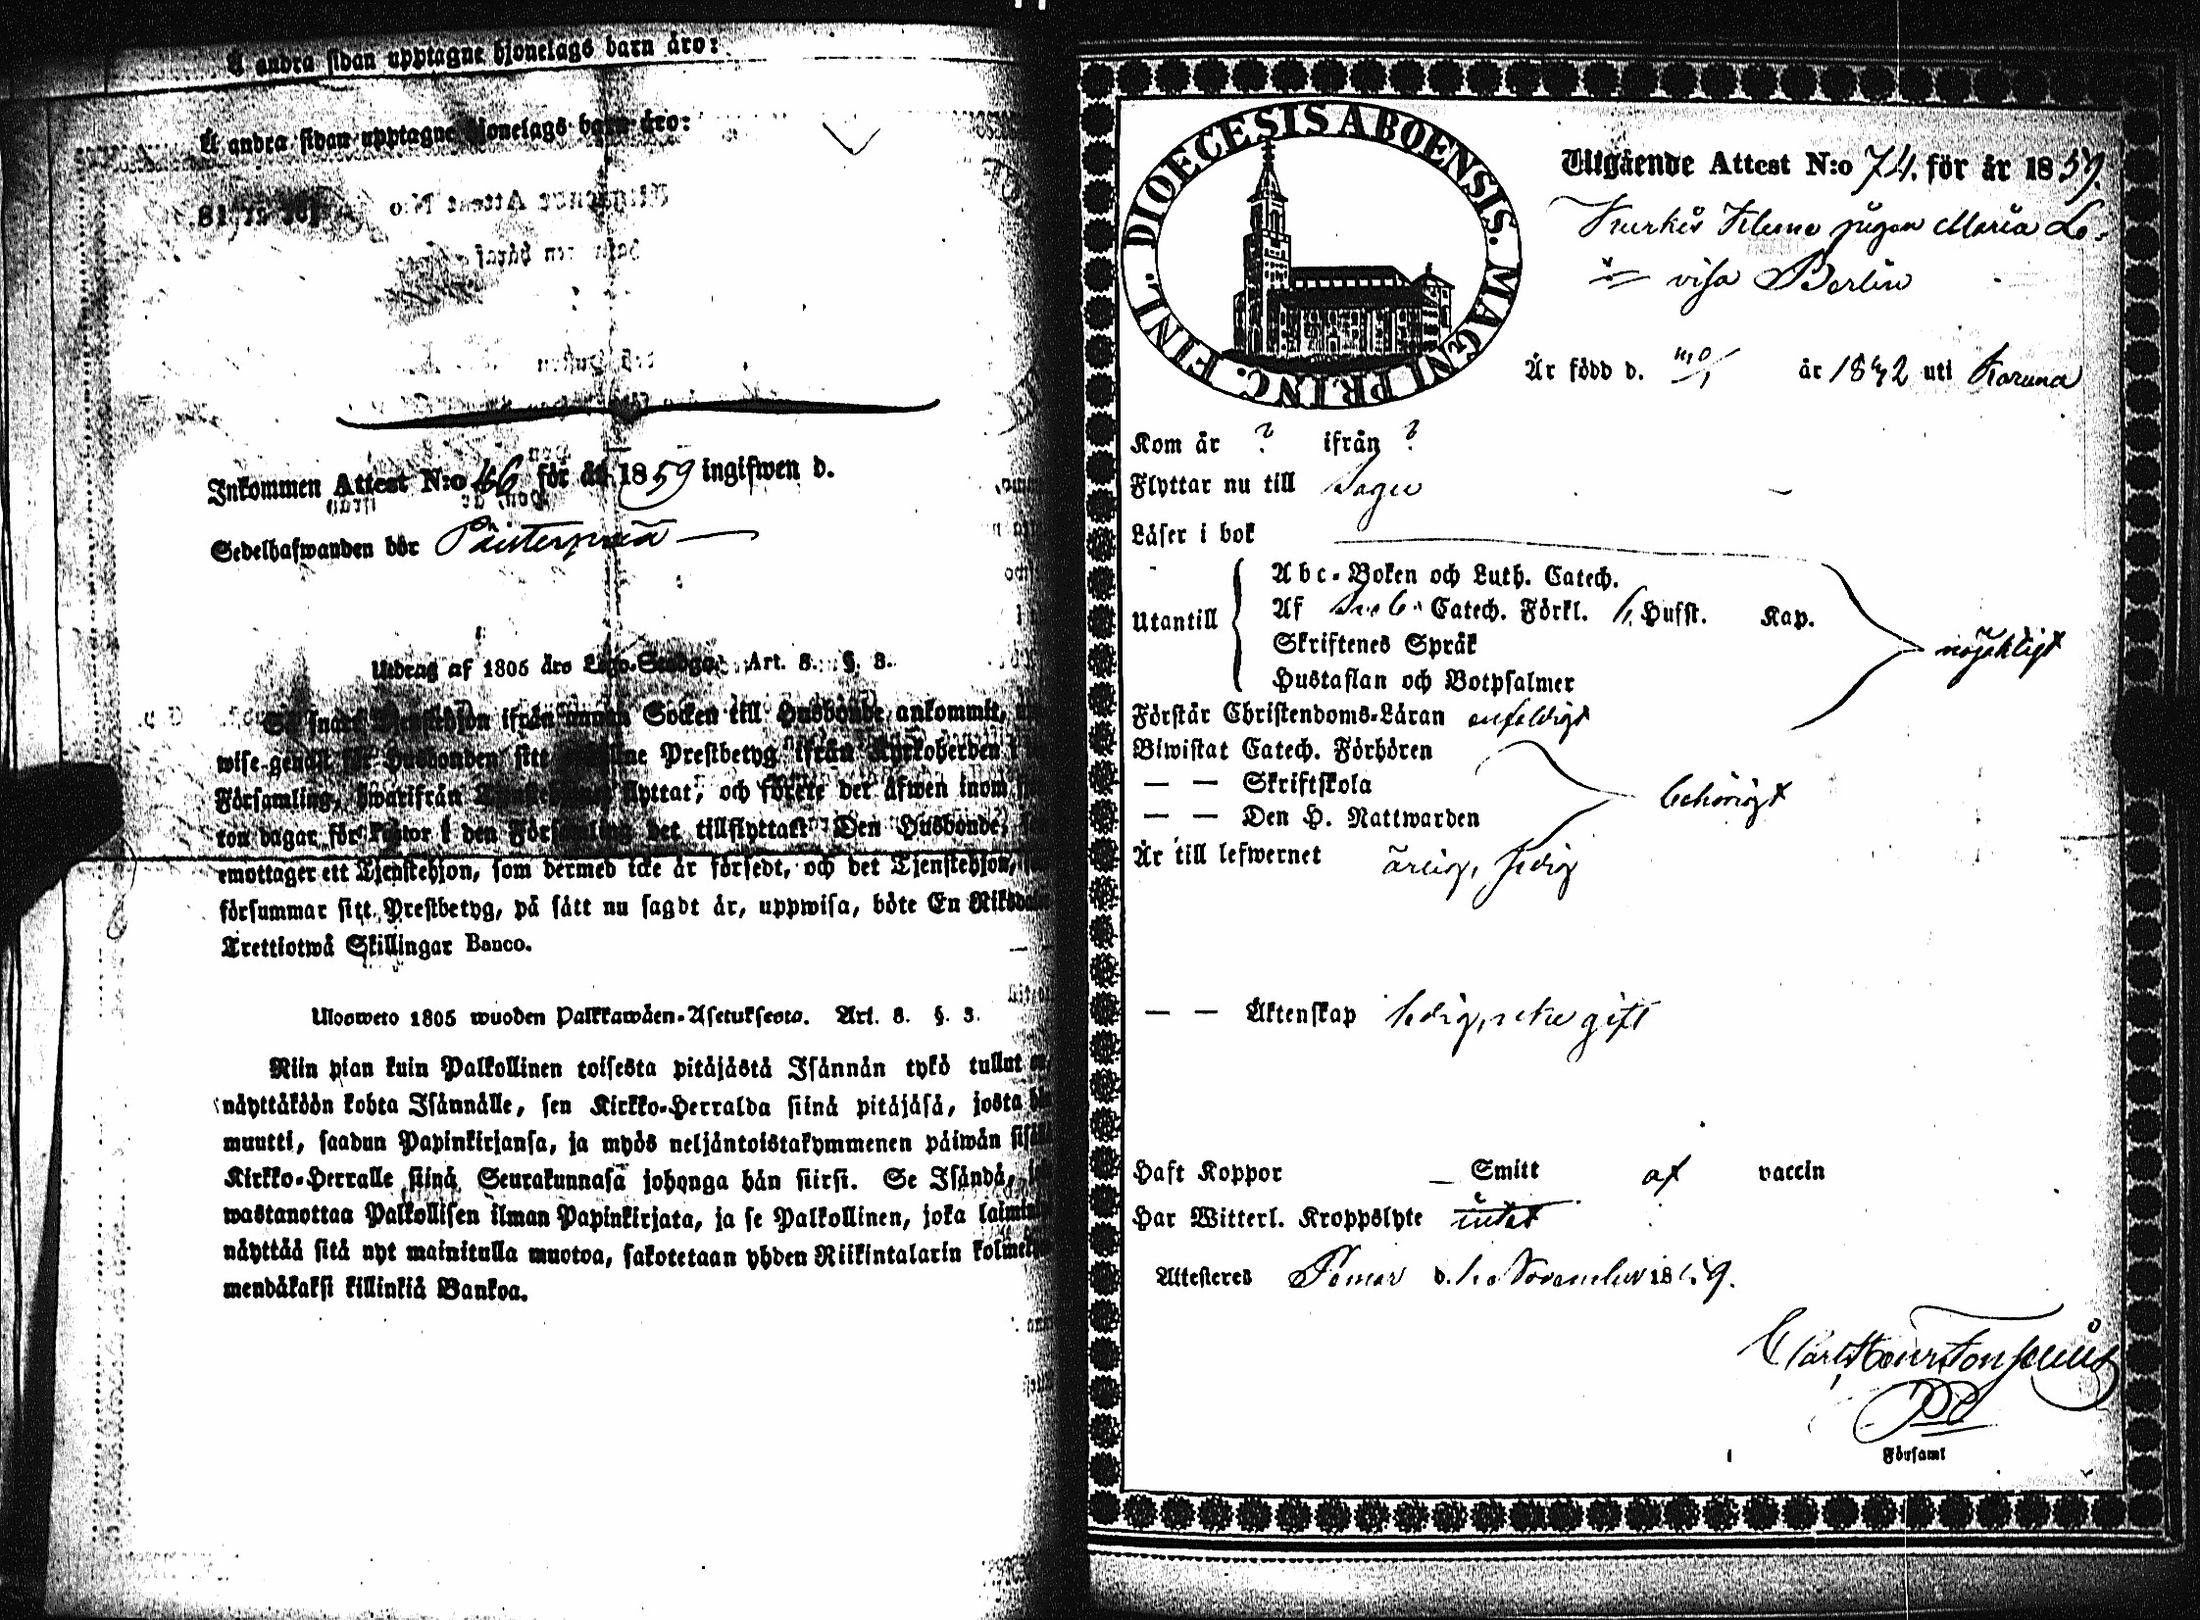 Å andra sidan upptagne hjonelags barn äro:
Å andra sidan upptagne hjonelags barn äro:
Inkommen Attest N:o 46 för år 1859 ingifwen d.
Sedelhafwanden bör
Utdrag af 1805 års Lego-Stadga, Art. 8. §. 3.
Så snart Tjenstehjon ifrån annan Socken till Husbonde ankommit,
wise genast för Husbonden sitt Prestbetyg ifrån Kyrkoherden i
Församling, hwarifrån flyttat, och förete det äfwen inom
ton dagar för Pastor i den Församling det tillflyttat. Den Husbonde,
emottager ett Tjenstehjon, som dermed icke är försedt, och det Tjenstehjon,
försummar sitt Prestbetyg, på sätt nu sagdt är, uppwisa, böte En
Trettiotwå Skillingar Banco.
Ulosweto 1805 wuoden Palkkawäen-Asetuksesta. Art. 8. §. 3.
Niin pian kuin Palkollinen toisesta pitäjästä Isännän tykö tullut
näyttäköön kohta Isännälle, sen Kirkko-Herralda siinä pitäjäsä, josta
muutti, saadun Papinkirjansa, ja myös neljäntoistakymmenen päiwän
Kirkko-Herralle siinä Seurakunnasa johonga hän siirsi. Se Isändä,
wastanottaa Palkollisen ilman Papinkirjata, ja se Palkollinen, joka
näyttää sitä nyt mainitulla muotoa, sakotetaan yhden Riikintalarin
mendäkaksi killinkiä Bankoa.
DIOECESIS ABOENSIS. MAGNI PRINC. FINL.
Utgående Attest N:o 74. för år 1859.
pigan Maria Lo-
visa Berlin
Är född d. år 1842 uti Karuna
Kom år ? ifrån ?
Flyttar nu till Sagu
Läser i bok
Utantill
Abc-Boken och Luth. Catech.
Af Catech. Förkl. Hufst. Kap.
Skriftenes Språk
Hustaflan och Botpsalmer
nöjaktigt
Förstår Christendoms-Läran enfaldigt
Biwistat Catech. Förhören
— — Skriftskola
— — Den H. Nattwarden
behörigt
Är till lefwernet ärlig, sedig
— — Äktenskap ledig, icke gift
Haft Koppor — Smitt af vaccin
Har Witterl. Kroppslyte intet
Attesteres Pemar d. November 1859.
Församl